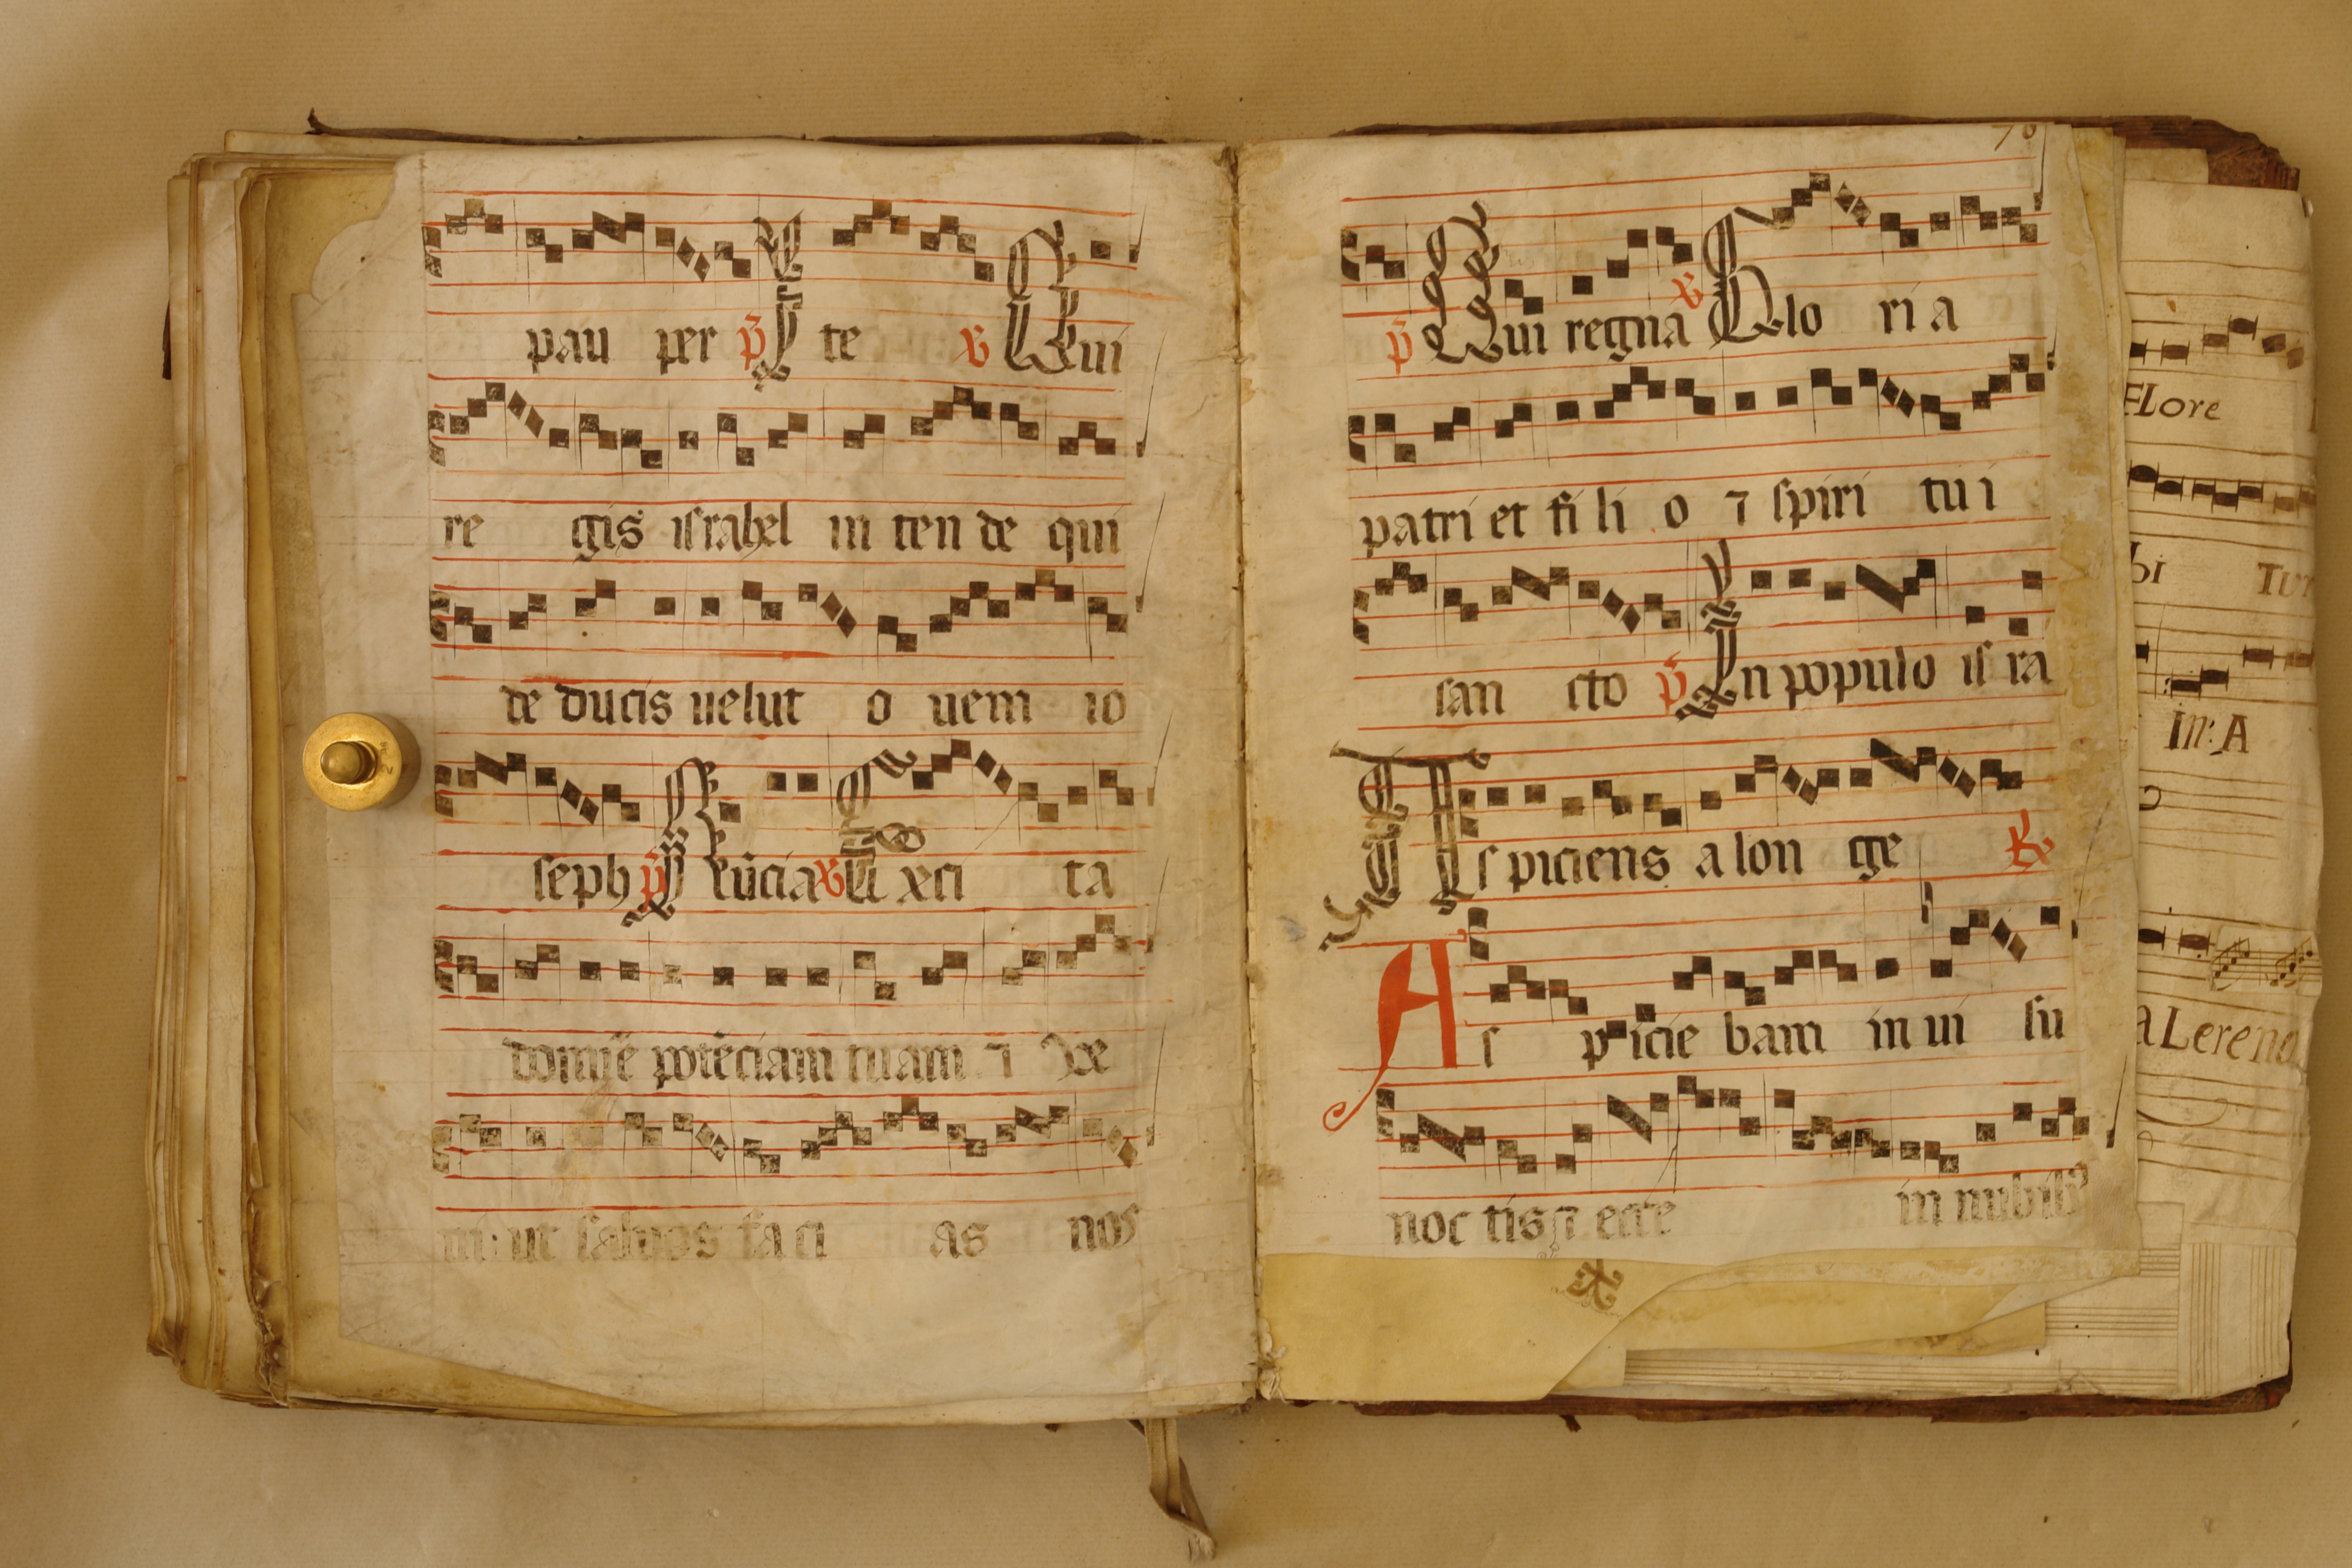 pau per p̄ I te v Qui
re gis israhel in ten de qui
de ducis uelut o uem io
seph p̄ Nūcia v Exci ta
domīe potēciam tuam ⁊ ve
ni: ut saluos fa ci as nos
76
p̄ Qui regna v Glo ri a
patri et fi li o ⁊ spiri tu i
san cto p̄ In populo is ra
As piciens a lon ge R
As picie bam in ui su
noc tis ⁊ ecce in nubib⁹
FLore
bi Tur
In: A
aLerena